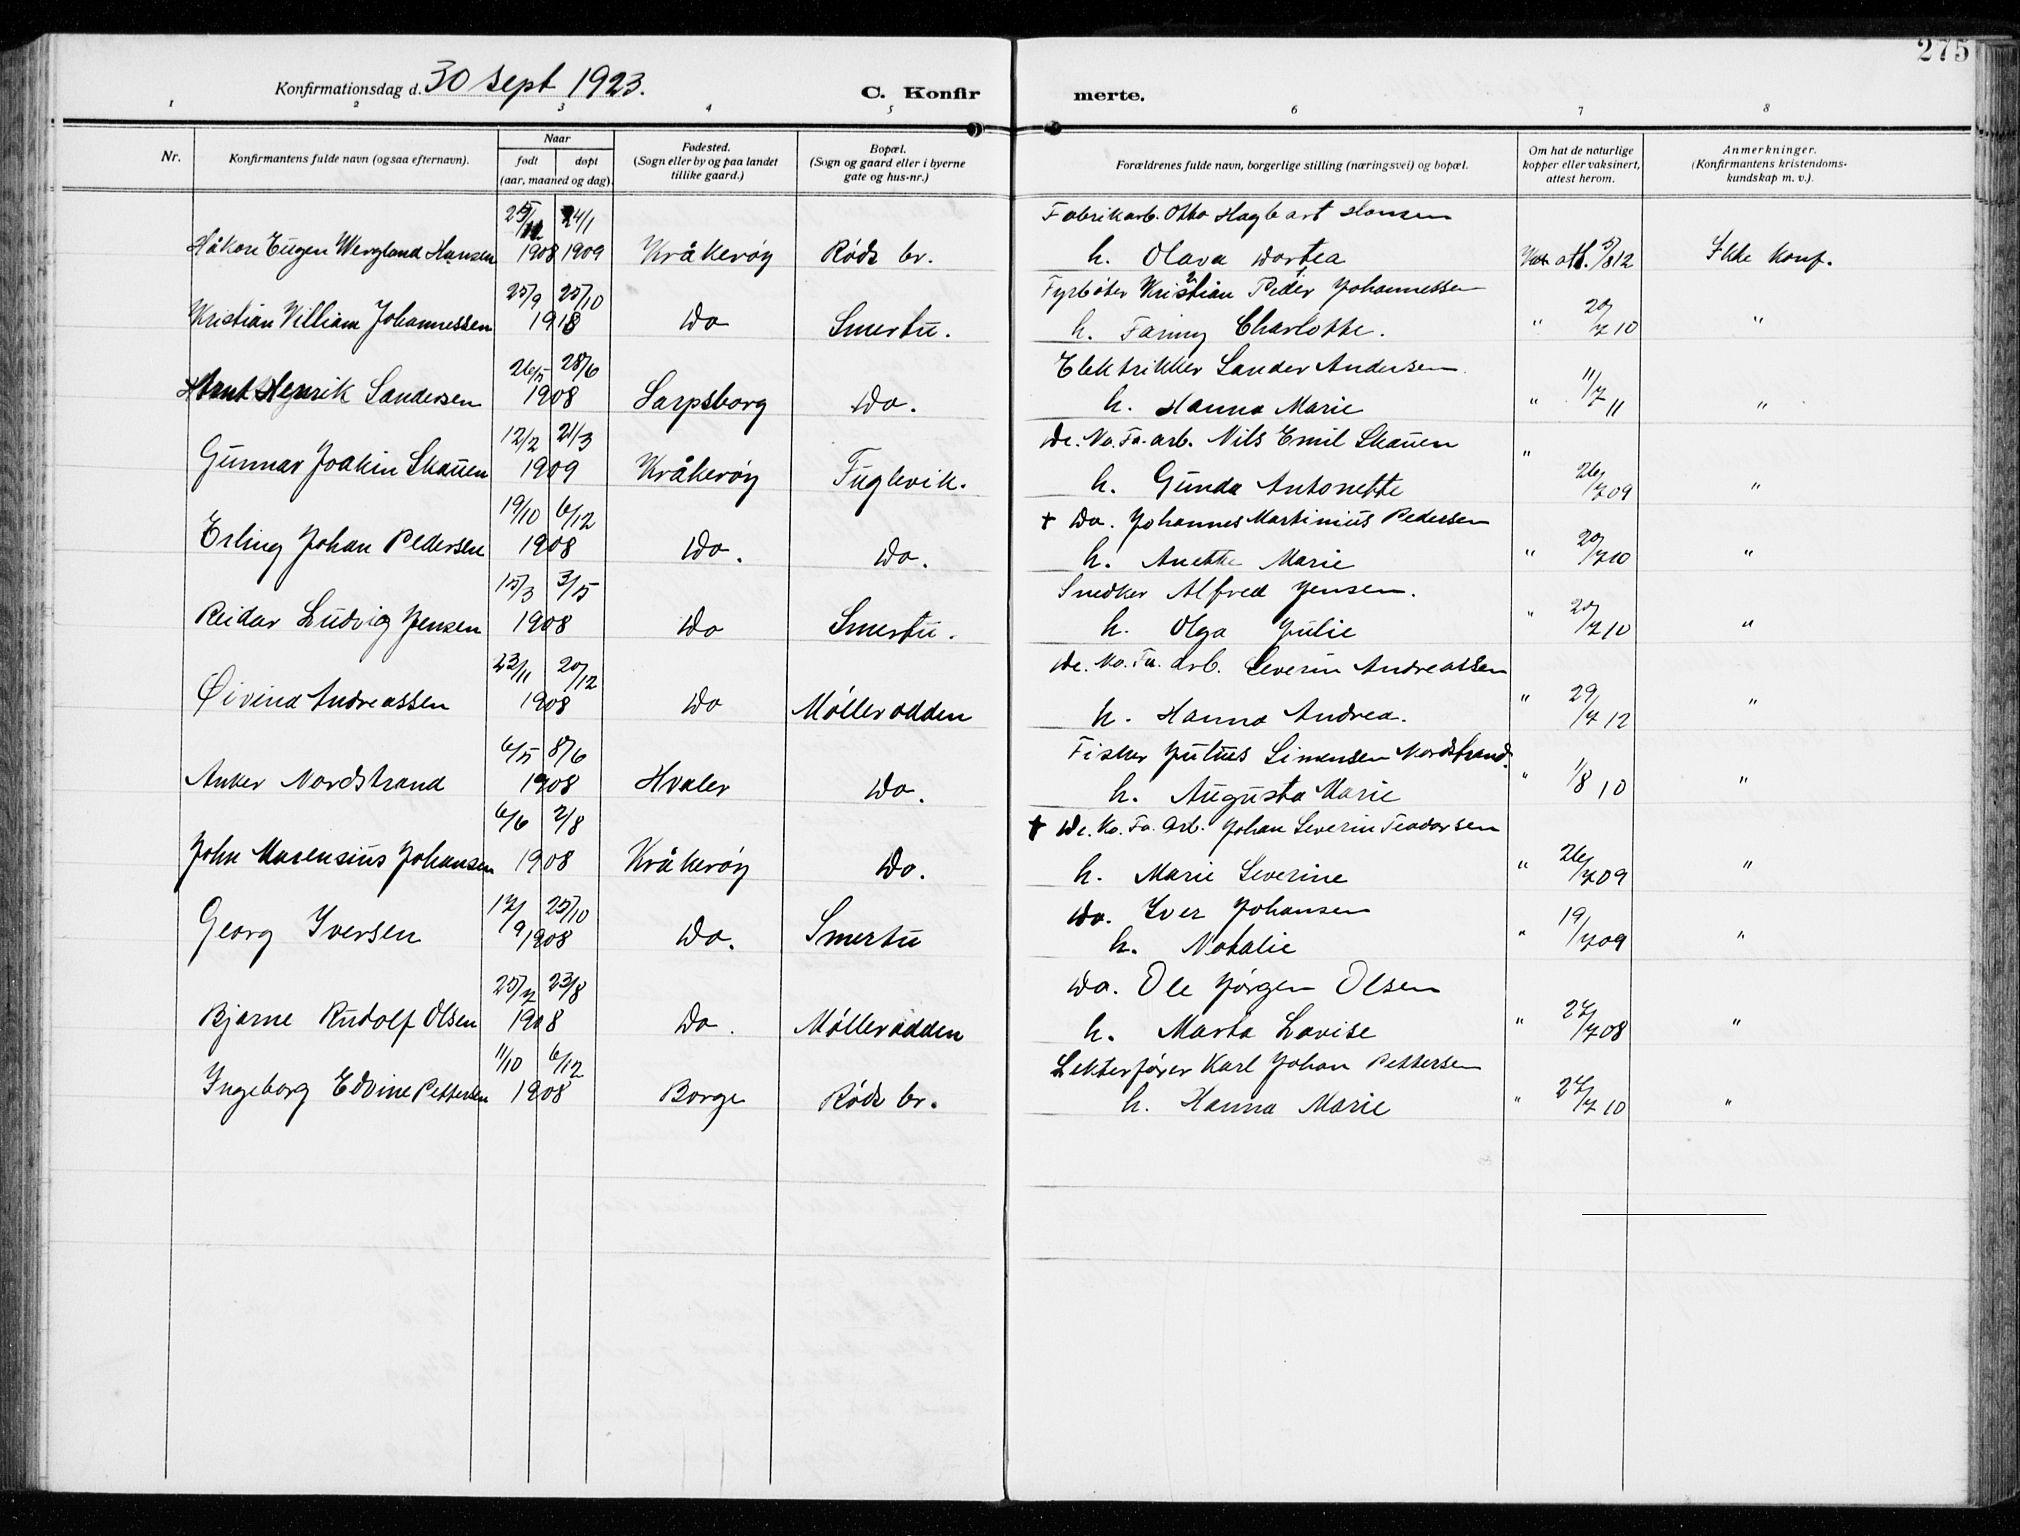 275
Konfirmationsdag d. 30 sept 1923. C. Konfirmerte.
1 2 3 4 5 6 7 8
Nr. Konfirmantens fulde navn (ogsaa efternavn). Naar født døpt (aar, maaned og dag). Fødested. (Sogn eller by og paa landet tillike gaard.) Bopæl. (Sogn og gaard eller i byerne gate og hus-nr.) Forældrenes fulde navn, borgerlige stilling (næringsvei) og bopæl. Om hat de naturlige kopper eller vaksinert, attest herom. Anmerkninger. (Konfirmantens kristendoms-kundskap m. v.).
24/1 Fabrikarb. Otto Hagbart Hansen
Håkon Eugen Wergland Hansen 1908 1909 Kråkerøy Røds br. h. Olava Dortea Vak att. 5/8 12 Ikke Konf.
25/9 25/10 Fyrbøter Kristian Peder Johannessen
Kristian Villiam Johannessen Do Smertu. h. Fanny Charlotte. " 20/7 10 "
26/5 28/6 Elektrikker Sander Andersen
Arnt Henrik Sandersen 1908 Sarpsborg Do. h. Hanna Marie " 11/7 11 "
12/2 21/3 De. No. Fa. arb. Nils Emil Skauen
Gunnar Joakim Skauen 1909 Kråkerøy Fuglevik. h. Gunda Antonette " 26/7 09 "
19/10 6/12 † Do. Johannes Martinius Pedersen
Erling Johan Pedersen 1908 Do. Do. h. Anette Marie " 20/7 10 "
15/3 3/5 Snedker Alfred Jensen.
Reidar Ludvig Jensen 1908 Do Smertu. h. Olga Julie " 20/7 10 "
23/11 20/12 De. No. Fa. arb. Severin Andreassen
Øivind Andreassen 1908 Do Møllerodden h. Hanna Andrea. " 29/7 12 "
6/5 8/6 Fisker Julius Simensen Nordstrand.
Anker Nordstrand 1908 Hvaler Do. h. Augusta Marie " 1/8 10 "
6/6 2/8 † De. No. Fa. Arb. Johan Severin Teodorsen
John Marensius Johansen 1908 Kråkerøy Do. h. Marie Severine " 26/7 09 "
17/9 25/10 Do. Iver Johansen
Georg Iversen 1908 Do. Smertu h. Natalie " 19/7 09 "
25/7 23/8 Do. Ole Jørgen Olsen
Bjarne Rudolf Olsen 1908 Do. Møllerodden h. Marta Lovise " 27/7 08 "
11/10 6/12 Lekterfører Karl Johan Pettersen
Ingeborg Edvine Pettersen 1908 Borge Røds br. h. Hanna Marie " 27/7 10 "